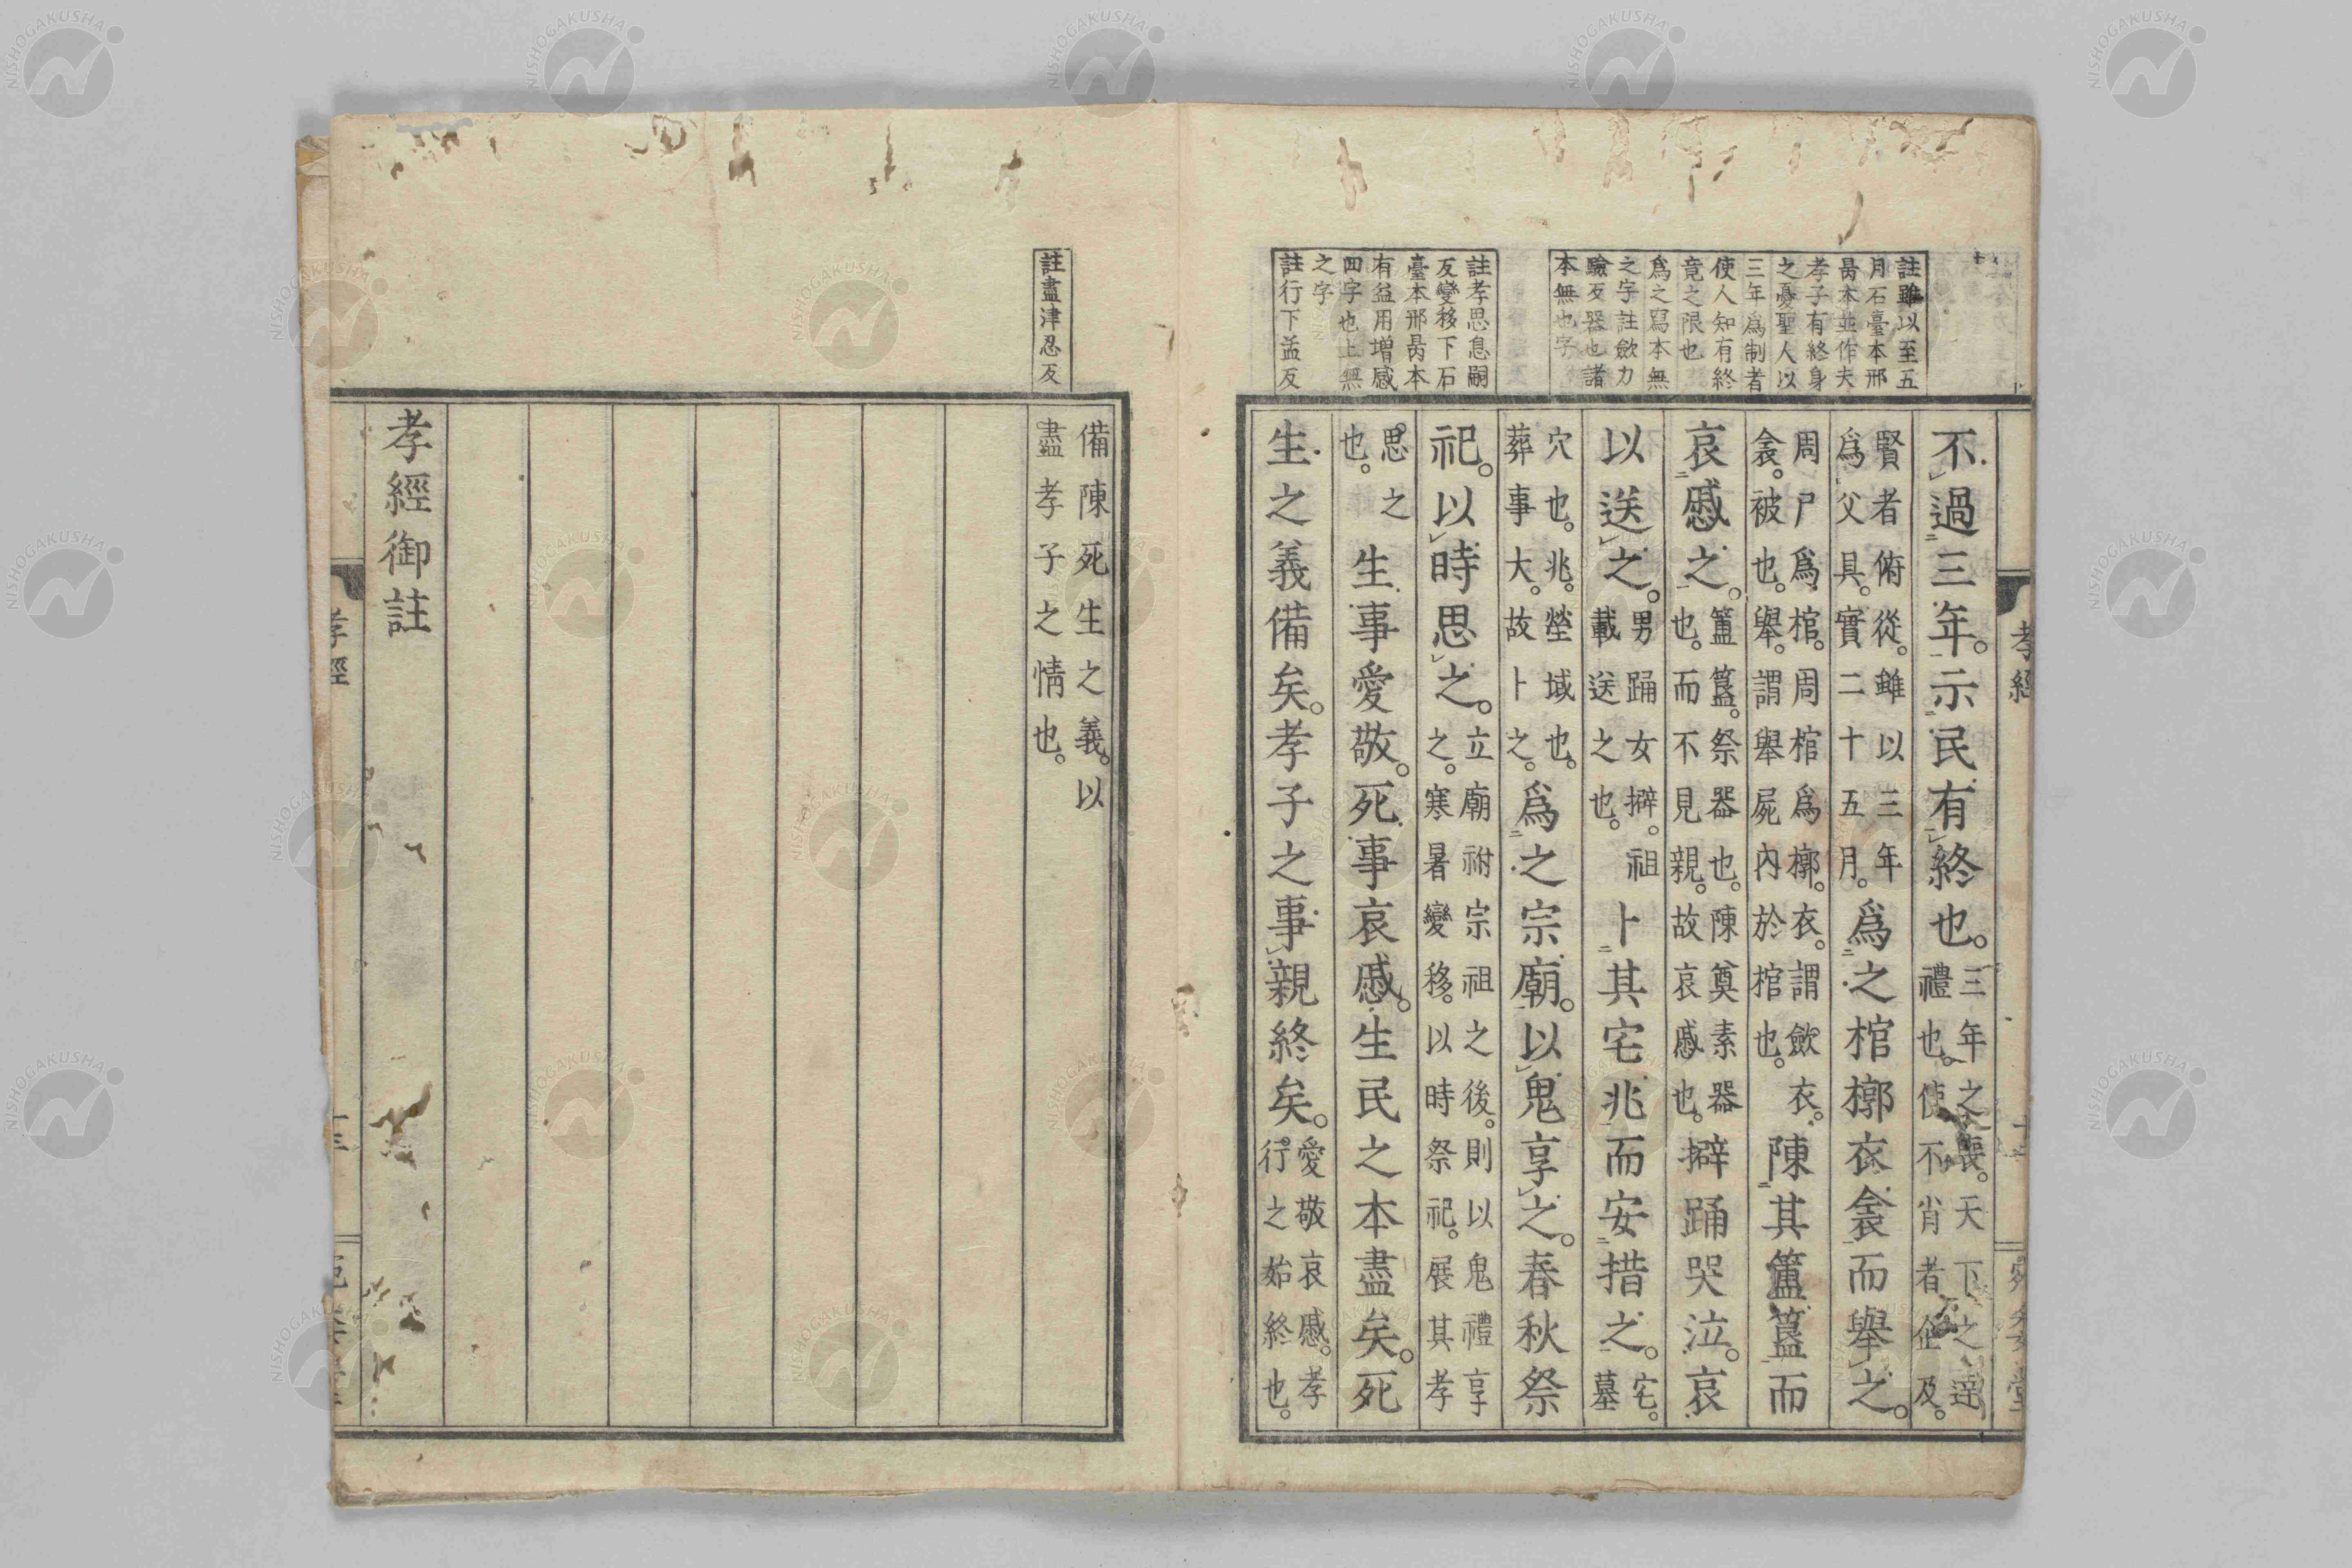 註雖以至五
月石臺本邢
昺本並作夫
孝子有終身
之憂聖人以
三年爲制者
使人知有終
竟之限也
爲之寫本無
之字註斂力
驗反器也諸
本無也字
註孝思息嗣
反變移下石
臺本邢昺本
有益用增感
四字也上無
之字
註行下孟反
孝經
不過三年。示民有終也。三年之喪。天下之達
禮也。使不肖者企及。
賢者俯從。雖以三年
爲父具。實二十五月。爲之棺槨衣衾而舉之。
周尸爲棺。周棺爲槨。衣。謂斂衣。
衾。被也。舉。謂舉屍內於棺也。陳其簠簋而
哀慼之。簠簋。祭器也。陳奠素器
也。而不見親。故哀慼也。擗踊哭泣。哀
以送之。男踊女擗。祖
載送之也。卜其宅兆而安措之。宅。
墓
穴也。兆。塋域也。
葬事大。故卜之。爲之宗廟。以鬼享之。春秋祭
祀。以時思之。立廟祔宗祖之後。則以鬼禮享
之。寒暑變移。以時祭祀。展其孝
思之
也。生事愛敬。死事哀慼。生民之本盡矣。死
生之義備矣。孝子之事親終矣。愛敬哀慼。孝
行之始終也。
註盡津忍反
備陳死生之義。以
盡孝子之情也。
孝經御註
孝經
NISHOGAKUSHA